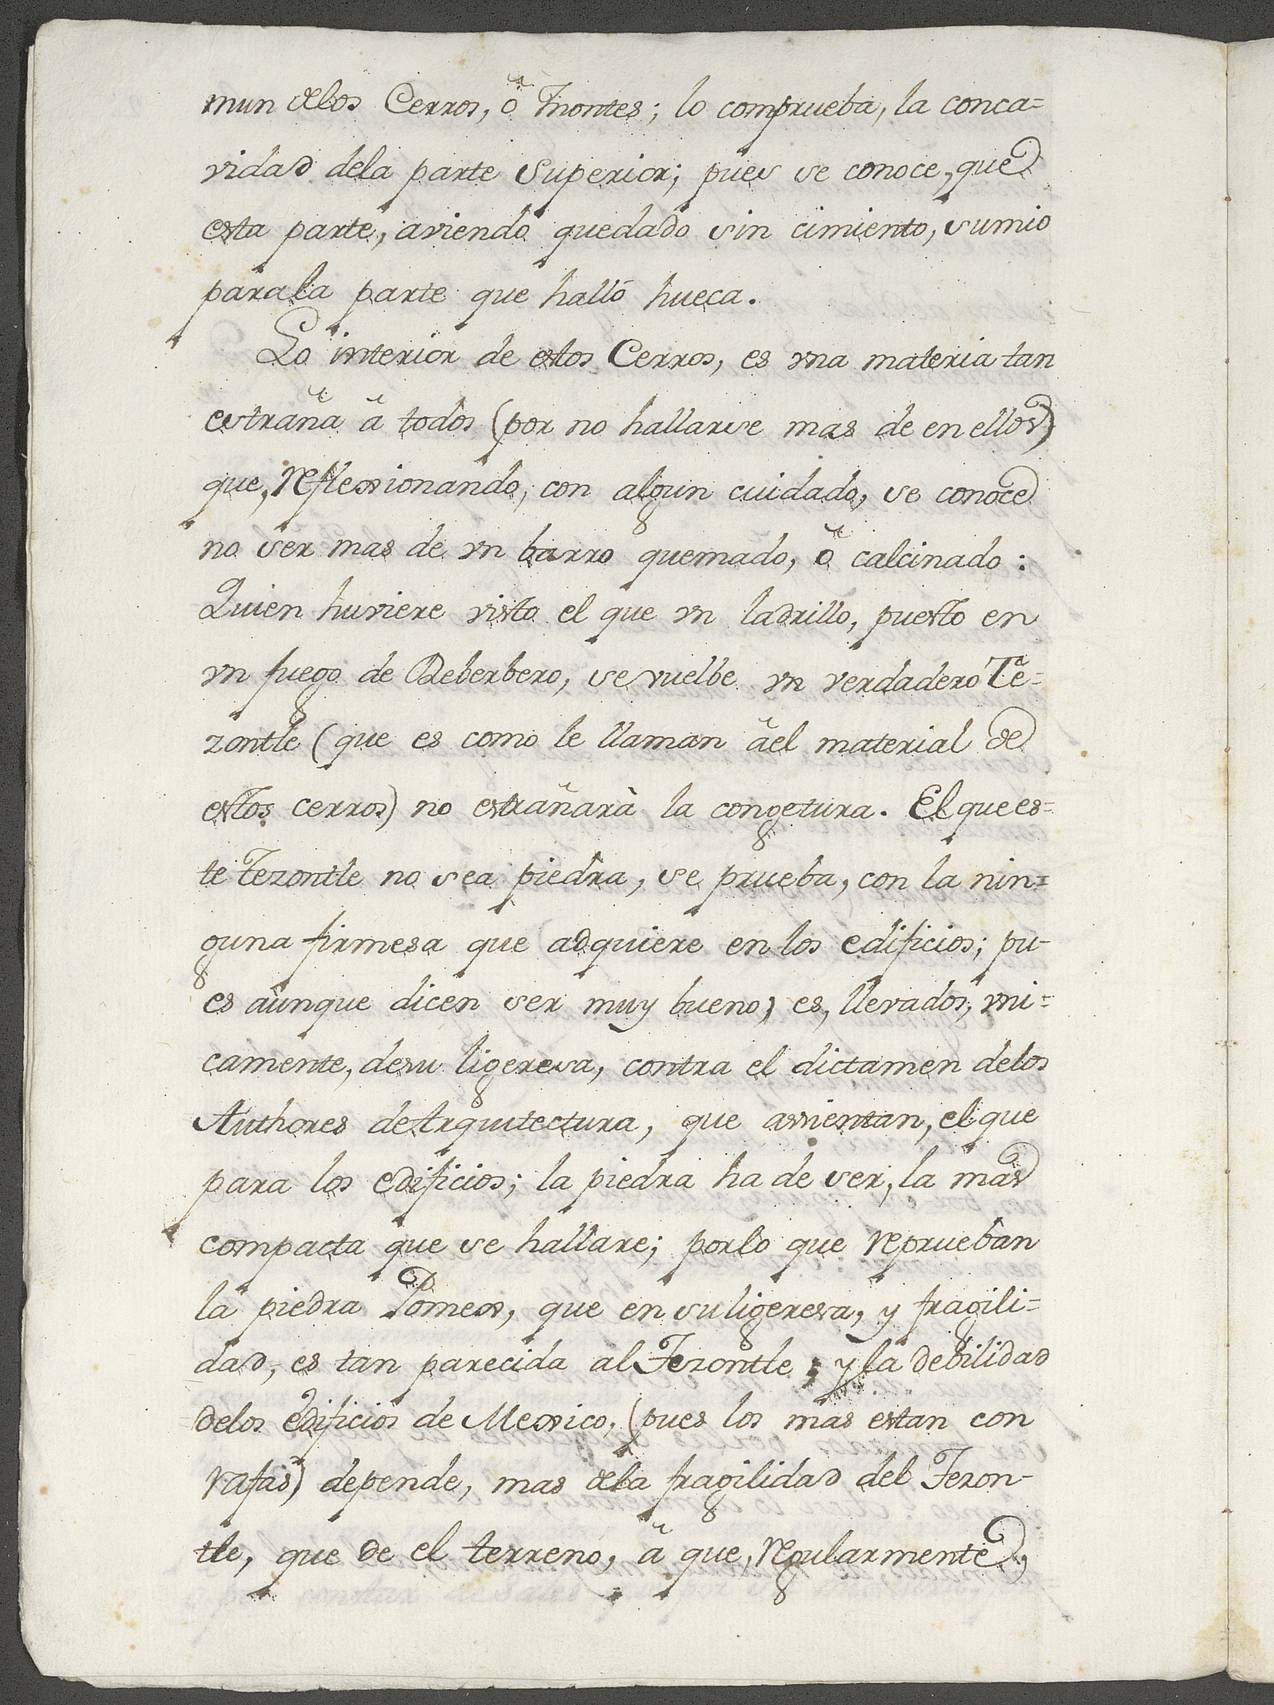 mun delos Cerros, ô montes; lo comprueba, la conca=
vidad dela parte Superior; pues se conoce, que
esta parte, aviendo quedado sin cimiento, sumio
parala parte que halló hueca.
Lo interior de estos Cerros, es vna materia tan
estraña â todos (por no hallarse mas de en ellos)
que, reflexionando, con algun cuidado, se conoce
no ser mas de vn barro quemado, ô calcinado:
Quien huviere visto el que vn ladrillo, puesto en
vn fuego de Reberbero, se vuelbe vn verdadero Te=
zontle (que es como le llaman âel material de
estos cerros) no estrañarà la congetura. El que es=
te Tezontle no sea piedra, se prueba, con la nin=
guna firmesa que adquiere en los edificios; pu-
es aunque dicen ser muy bueno, es, llevados, vni=
camente, desu ligeresa, contra el dictamen delos
Authores deArquitectura, que assientan, el que
para los edificios; la piedra ha de ser, la mas
compacta que se hallare; porlo que reprueban
la piedra Pomex, que en suligeresa, y fragili=
dad, es tan parecida al Tezontle; y la debilidad
delos edificios de Mexico, (pues los mas estan con
rafas) depende, mas dela fragilidad del Tezon-
tle, que de el terreno, â que, regularmente,